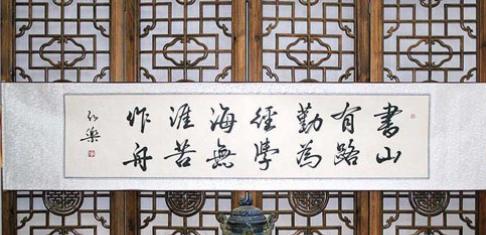 書山
有路
勤為
徑學
海無
涯苦
作舟
樂